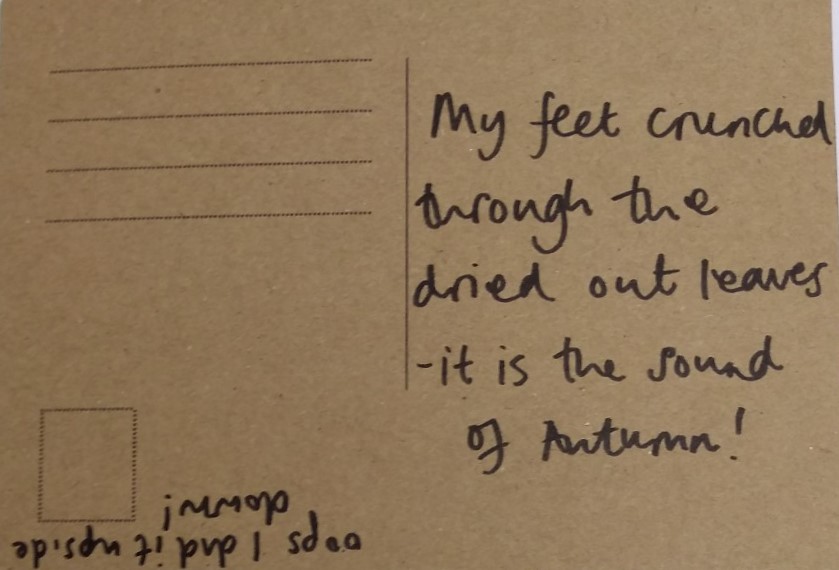 My feet crunched
through the
dried out leaves
-it is the sound
of Autumn!
oops I did it upside
down!